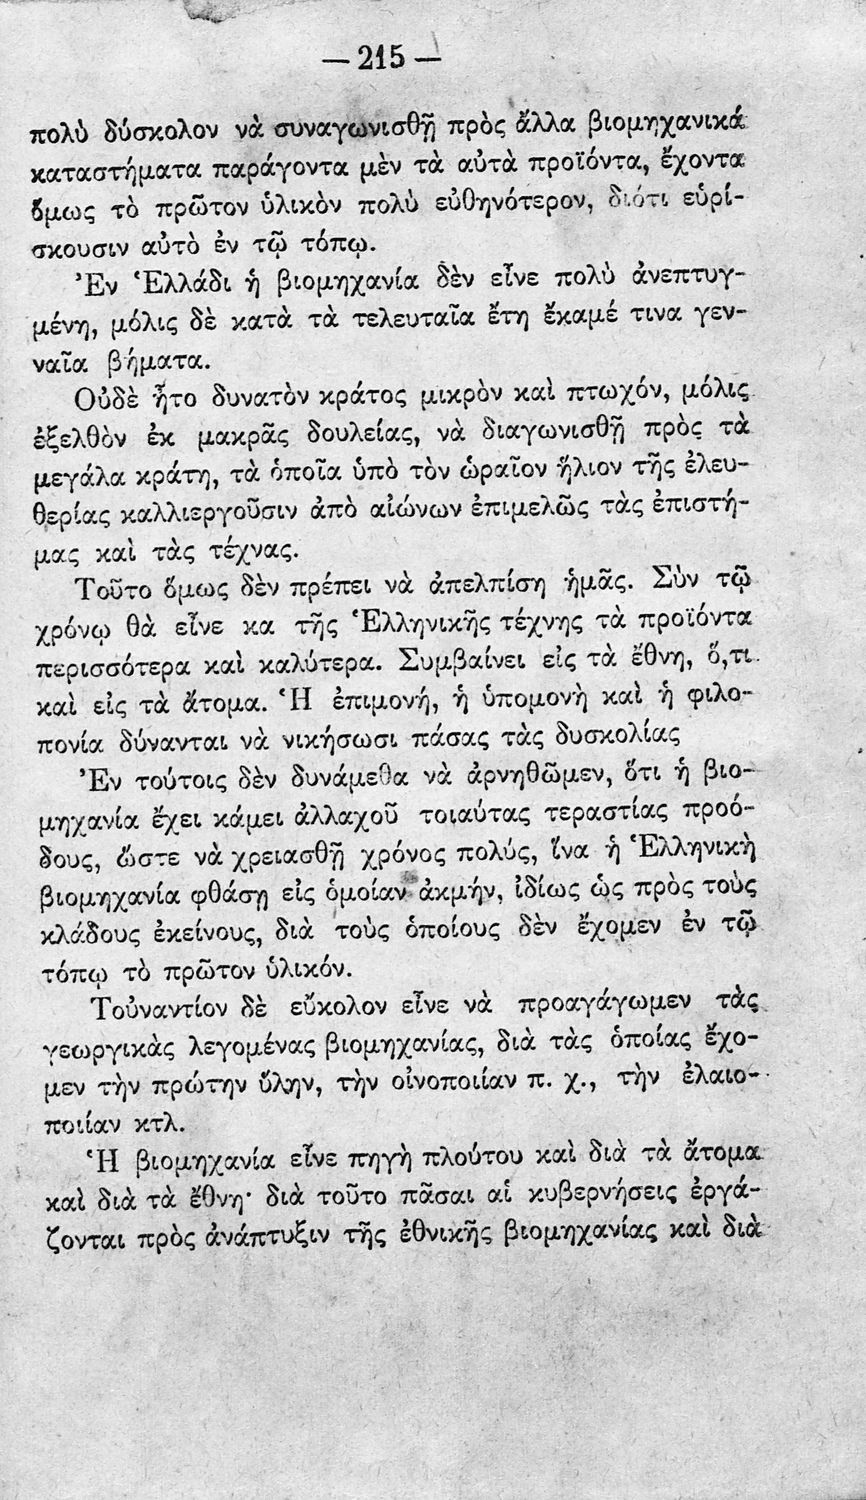 — 215 —
πολὺ δύσκολον νὰ συναγωνισθῇ πρὸς ἄλλα βιομηχανικά
καταστήματα παράγοντα μὲν τὰ αὐτὰ προϊόντα, ἔχοντα
ὅμως τὸ πρῶτον ὑλικὸν πολὺ εὐθηνότερον, διότι εὑρί-
σκουσιν αὐτὸ ἐν τῷ τόπῳ.
Ἐν Ἑλλάδι ἡ βιομηχανία δὲν εἶνε πολὺ ἀνεπτυγ-
μένη, μόλις δὲ κατὰ τὰ τελευταῖα ἔτη ἔκαμέ τινα γεν-
ναῖα βήματα.
Οὐδὲ ἦτο δυνατὸν κράτος μικρὸν καὶ πτωχόν, μόλις
ἐξελθὸν ἐκ μακρᾶς δουλείας, νὰ διαγωνισθῇ πρὸς τὰ
μεγάλα κράτη, τὰ ὁποῖα ὑπὸ τὸν ὡραῖον ἥλιον τῆς ἐλευ-
θερίας καλλιεργοῦσιν ἀπὸ αἰώνων ἐπιμελῶς τὰς ἐπιστή-
μας καὶ τὰς τέχνας.
Τοῦτο ὅμως δὲν πρέπει νὰ ἀπελπίσῃ ἡμᾶς. Σὺν τῷ
χρόνῳ θὰ εἶνε κα τῆς Ἑλληνικῆς τέχνης τὰ προϊόντα
περισσότερα καὶ καλύτερα. Συμβαίνει εἰς τὰ ἔθνη, ὅ,τι
καὶ εἰς τὰ ἄτομα. Ἡ ἐπιμονή, ἡ ὑπομονὴ καὶ ἡ φιλο-
πονία δύνανται νὰ νικήσωσι πάσας τὰς δυσκολίας
Ἐν τούτοις δὲν δυνάμεθα νὰ ἀρνηθῶμεν, ὅτι ἡ βιο-
μηχανία ἔχει κάμει ἀλλαχοῦ τοιαύτας τεραστίας προό-
δους, ὥστε νὰ χρειασθῇ χρόνος πολύς, ἵνα ἡ Ἑλληνικὴ
βιομηχανία φθάσῃ εἰς ὁμοίαν ἀκμήν, ἰδίως ὡς πρὸς τοὺς
κλάδους ἐκείνους, διὰ τοὺς ὁποίους δὲν ἔχομεν ἐν τῷ
τόπῳ τὸ πρῶτον ὑλικόν.
Τοὐναντίον δὲ εὔκολον εἶνε νὰ προαγάγωμεν τὰς
γεωργικὰς λεγομένας βιομηχανίας, διὰ τὰς ὁποίας ἔχο-
μεν τὴν πρώτην ὕλην, τὴν οἰνοποιίαν π. χ., τὴν ἐλαιο-
ποιίαν κτλ.
Ἡ βιομηχανία εἶνε πηγὴ πλούτου καὶ διὰ τὰ ἄτομα
καὶ διὰ τὰ ἔθνη· διὰ τοῦτο πᾶσαι αἱ κυβερνήσεις ἐργά-
ζονται πρὸς ἀνάπτυξιν τῆς ἐθνικῆς βιομηχανίας καὶ διὰ